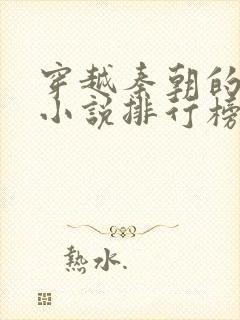 穿越秦朝的
小説排行榜
熱水.